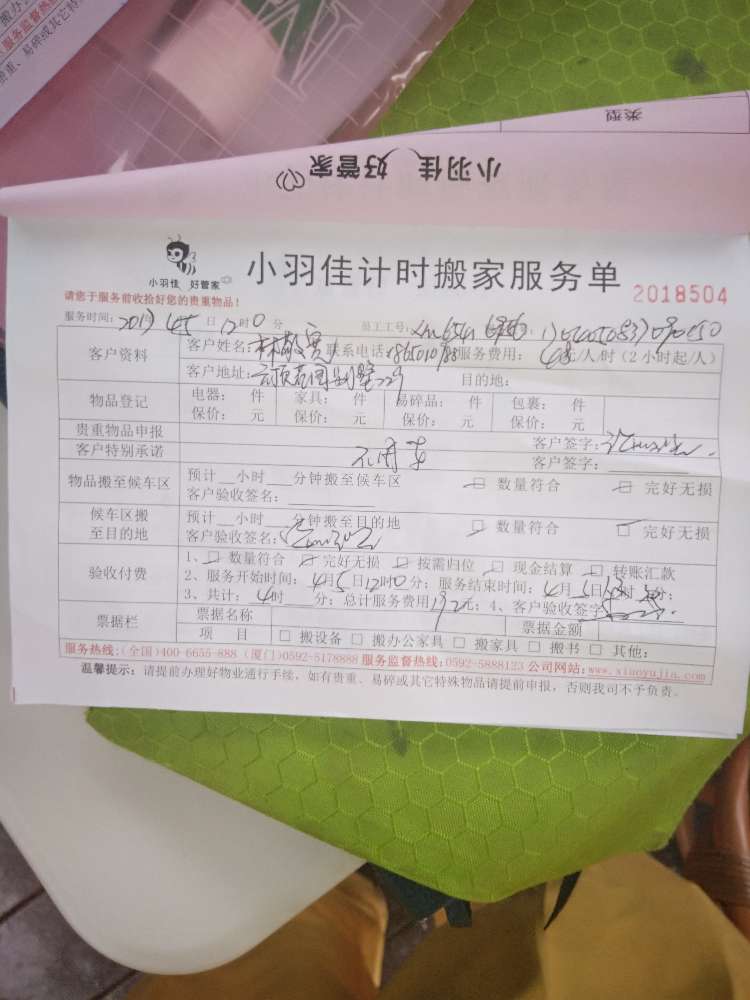 类型
小羽佳 好管家
小羽佳 好管家
小羽佳计时搬家服务单
2018504
请您于服务前收拾好您的贵重物品!
服务时间: 日 12时0分 员工工号:
客户资料
客户姓名: 联系电话: 服务费用: 元/人/时(2小时起/人)
客户地址: 目的地:
物品登记
电器: 件 家具: 件 易碎品: 件 包裹: 件
保价: 元 保价: 元 保价: 元 保价: 元
贵重物品申报 客户签字:
客户特别承诺 客户签字:
物品搬至候车区
预计__小时___分钟搬至候车区 数量符合 完好无损
客户验收签名:
候车区搬至目的地
预计__小时___分钟搬至目的地 数量符合 □ 完好无损
客户验收签名:
验收付费
1、 数量符合 完好无损 按需归位 □ 现金结算 转账汇款
2、服务开始时间: 4月5日12时0分; 服务结束时间: 4月5日 时 分;
3、共计: 4时___分; 总计服务费用192元; 4、客户验收签字
票据栏
票据名称 票据金额
项目 □ 搬设备 □ 搬办公家具 □ 搬家具 □ 搬书 □ 其他:
服务热线:(全国)400-6655-888 (厦门)0592-5178888 服务监督热线:0592-5888123 公司网站:www.xiaoyujia.com
温馨提示: 请提前办理好物业通行手续, 如有贵重、易碎或其它特殊物品请提前申报, 否则我司不予负责。